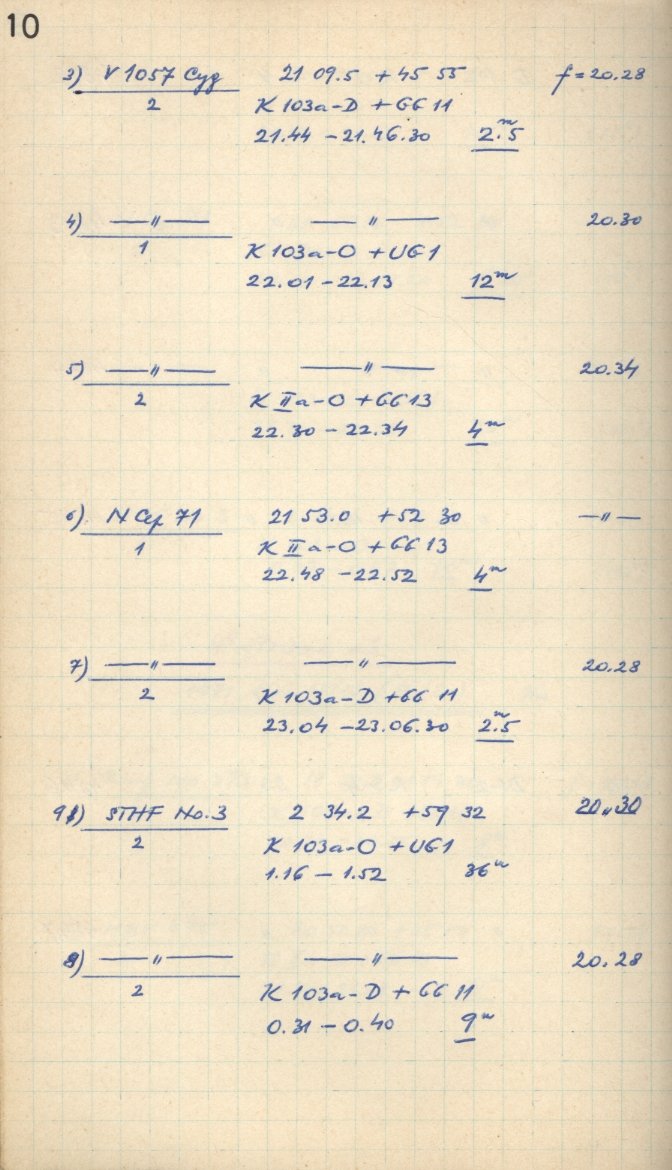 10
3) V 1057 Cyg 21 09.5 +45 55 f = 20.28
2 K 103a-D + GG 11
21.44 - 21.46.30 2.ᵐ5
4) —〃— —〃— 20.30
1 K 103a-O + UG1
22.01 - 22.13 12ᵐ
5) —〃— —〃— 20.34
2 K IIa-O + GG13
22.30 - 22.34 4ᵐ
6) N Cep 71 21 53.0 +52 30 —〃—
1 K IIa-O + GG13
22.48 - 22.52 4ᵐ
7) —〃— —〃— 20.28
2 K 103a-D + GG 11
23.04 - 23.06.30 2.ᵐ5
9) STHF No.3 2 34.2 +59 32 20.30
2 K 103a-O + UG1
1.16 - 1.52 36ᵐ
8) —〃— —〃— 20.28
2 K 103a-D + GG 11
0.31 - 0.40 9ᵐ